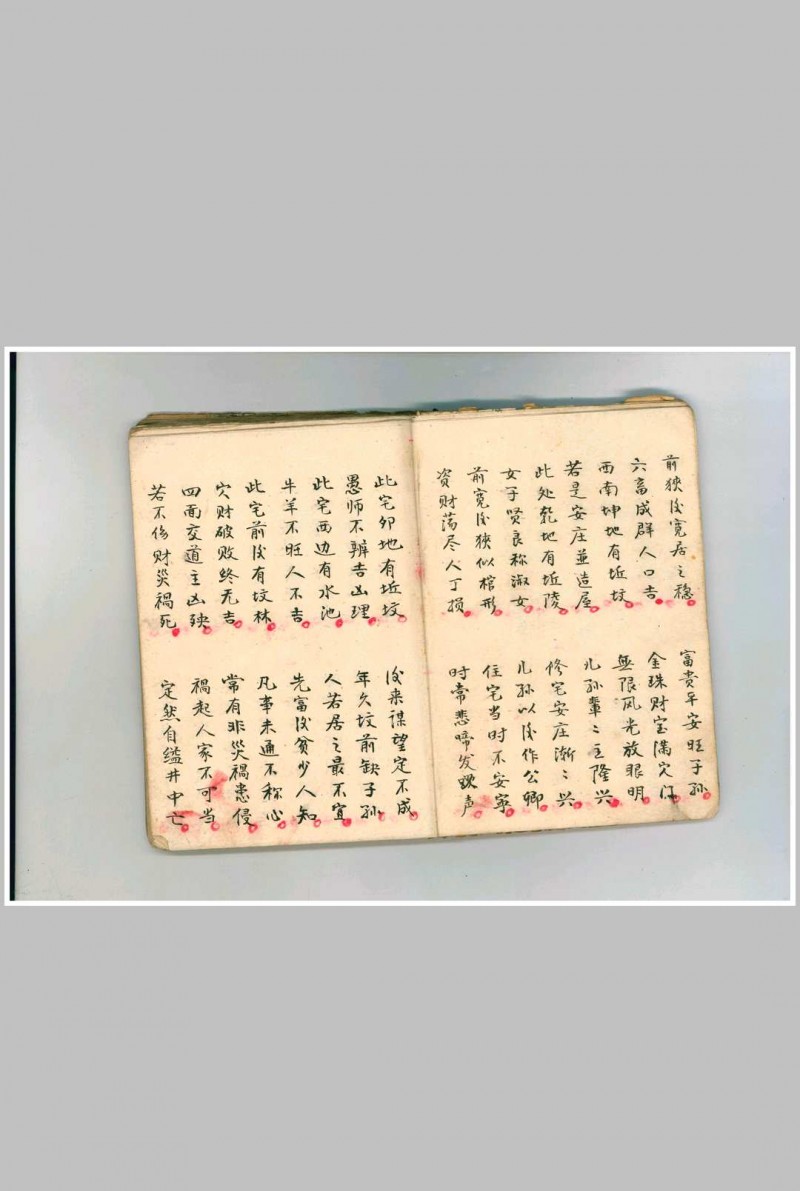 前狭後宽居之稳 富貴平安旺子孙
六畜成群人口吉 金珠财宝满穴门
西南坤地有坵坟 無限风光放眼明
若是安庄並造屋 儿孙輩々主隆兴
此处乾地有坵陵 修宅安庄漸々兴
女子賢良称淑女 儿孙以後作公卿
前宽後狭似棺形 住宅当时不安寧
资财荡尽人丁損 时常悲啼发声
此宅卯地有坵坟 後来谋望定不成
愚师不辨吉凶理 年久坟前缺子孙
此宅西边有水池 人若居之最不宜
牛羊不旺人不吉 先富後贫少人知
此宅前後有坟林 凡事未通不称心
穴财破败终无吉 常有非災禍患侵
四面交道主凶殃 禍起人家不可当
若不伤财災禍死 定然自缢井中亡